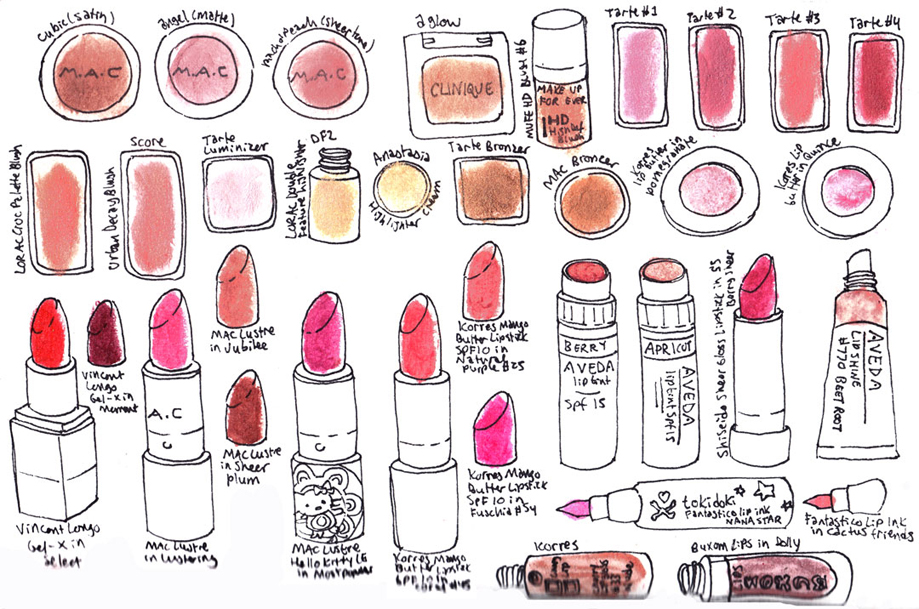 cubic (satin)
M.A.C
angel (matte)
M.A.C
M.A.C
aglow
CLINIQUE
MUFE HD BLUSH #6
MAKE UP
FOR EVER
HD
Tarte #1
Tarte #2
Tarte #3
Tarte #4
LORAC Croc Palette Blush
Score
Urban Decay Blush
Tarte
Luminizer
DF2
LORAC Double
Feature Highlighter
Anastasia
Highlighter Cream
Tarte Bronzer
MAC Bronzer
Korres
lip butter in
Korres Lip
butter in Quince
Vincent Longo
Gel-X in
Select
Vincent
Longo
Gel-X in
A.C
C
MAC Lustre
in Lustering
MAC Lustre
in Jubilee
MAC Lustre
in Sheer
plum
C
MAC Lustre
Hello Kitty LE
in
Korres Mango
Butter Lipstick
SPF10 in
Korres Mango
Butter Lipstick
SPF10 in
Natural
Purple #25
Korres Mango
Butter Lipstick
SPF 10 in
Fuschia #54
BERRY
AVEDA
lip tint
spf 15
APRICOT
AVEDA
lip tint spf 15
Shiseido Sheer Gloss Lipstick in S5
Berry Sheer
AVEDA
LIP SHINE
#770 BEET ROOT
tokidoki
Fantastico lip ink
NANA STAR
Fantastico Lip Ink
in Cactus Friends
Korres
Buxom Lips in Dolly
LIPS